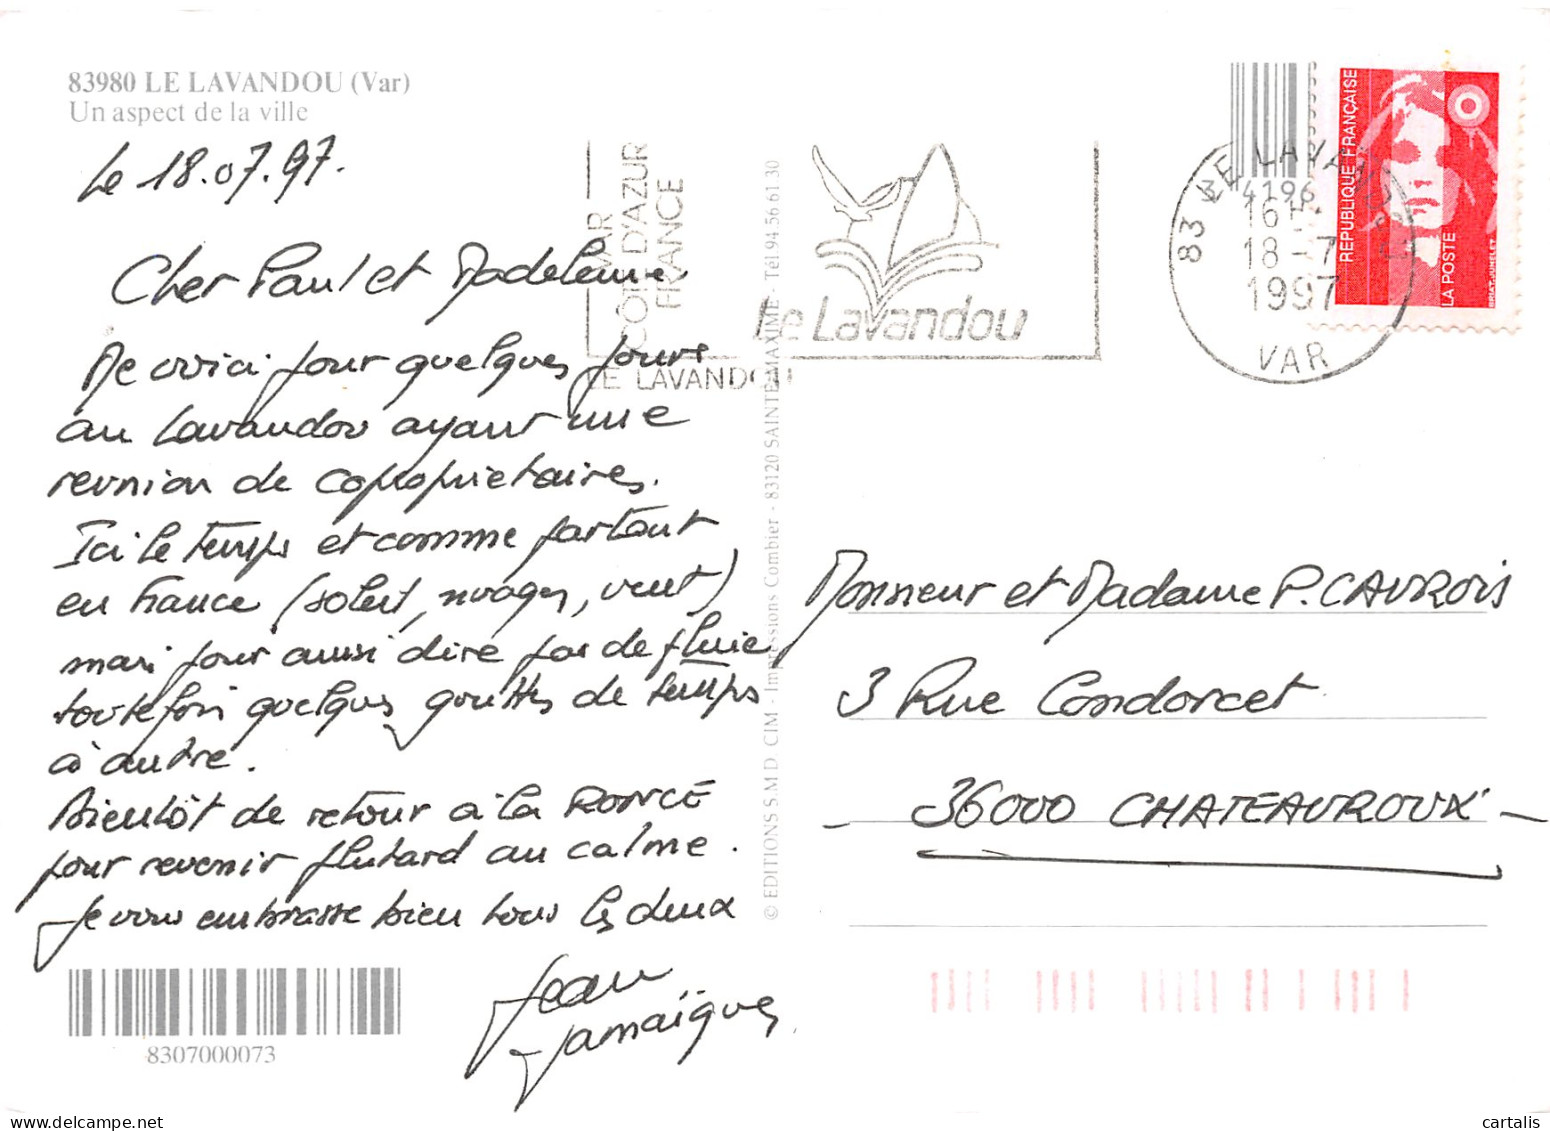 83980 LE LAVANDOU (Var)
Un aspect de la ville
Le 18.07.97.
Cher Paul et Madeleine
Me voici pour quelques jours
au Lavandou ayant une
reunion de copropriétaires.
Ici le temps et comme partout
en France (soleil, nuages, vent)
mais pour aussi dire pas de pluie
toutefois quelques gouttes de temps
à autre.
Bientôt de retour à la RONCE
pour revenir plutard au calme.
Je vous embrasse bien tous les deux
Jean
8307000073
VAR
CÔTE D'AZUR
FRANCE
LE LAVANDOU
Le Lavandou
© EDITIONS S.M.D CIM - Impressions Combier - 83120 SAINTE-MAXIME - Tél 94 56 61 30
83 LE LAVANDOU
4196
16 H
18 - 7
1997
VAR
REPUBLIQUE FRANÇAISE
LA POSTE
BRIAT-JUMELET
Monsieur et Madame P. CAVROIS
3 Rue Condorcet
36000 CHATEAUROUX
cartalis